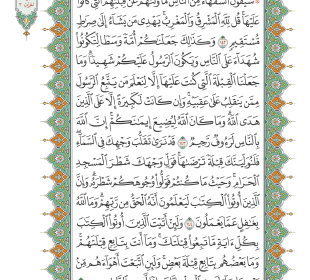 سَيَقُولُ السُّفَهَاءُ مِنَ النَّاسِ مَا وَلَّىٰهُمْ عَن قِبْلَتِهِمُ الَّتِي كَانُوا
عَلَيْهَا قُل لِّلَّهِ الْمَشْرِقُ وَالْمَغْرِبُ يَهْدِي مَن يَشَاءُ إِلَىٰ صِرَٰطٍ
مُّسْتَقِيمٍ وَكَذَٰلِكَ جَعَلْنَٰكُمْ أُمَّةً وَسَطًا لِّتَكُونُوا
شُهَدَاءَ عَلَى النَّاسِ وَيَكُونَ الرَّسُولُ عَلَيْكُمْ شَهِيدًا وَمَا
جَعَلْنَا الْقِبْلَةَ الَّتِي كُنتَ عَلَيْهَا إِلَّا لِنَعْلَمَ مَن يَتَّبِعُ الرَّسُولَ
مِمَّن يَنقَلِبُ عَلَىٰ عَقِبَيْهِ وَإِن كَانَتْ لَكَبِيرَةً إِلَّا عَلَى الَّذِينَ
هَدَى اللَّهُ وَمَا كَانَ اللَّهُ لِيُضِيعَ إِيمَٰنَكُمْ إِنَّ اللَّهَ
بِالنَّاسِ لَرَءُوفٌ رَّحِيمٌ قَدْ نَرَىٰ تَقَلُّبَ وَجْهِكَ فِي السَّمَاءِ
فَلَنُوَلِّيَنَّكَ قِبْلَةً تَرْضَىٰهَا فَوَلِّ وَجْهَكَ شَطْرَ الْمَسْجِدِ
الْحَرَامِ وَحَيْثُ مَا كُنتُمْ فَوَلُّوا وُجُوهَكُمْ شَطْرَهُ وَإِنَّ
الَّذِينَ أُوتُوا الْكِتَٰبَ لَيَعْلَمُونَ أَنَّهُ الْحَقُّ مِن رَّبِّهِمْ وَمَا اللَّهُ
بِغَٰفِلٍ عَمَّا يَعْمَلُونَ وَلَئِنْ أَتَيْتَ الَّذِينَ أُوتُوا الْكِتَٰبَ
بِكُلِّ ءَايَةٍ مَّا تَبِعُوا قِبْلَتَكَ وَمَا أَنتَ بِتَابِعٍ قِبْلَتَهُمْ
وَمَا بَعْضُهُم بِتَابِعٍ قِبْلَةَ بَعْضٍ وَلَئِنِ اتَّبَعْتَ أَهْوَاءَهُم مِّن